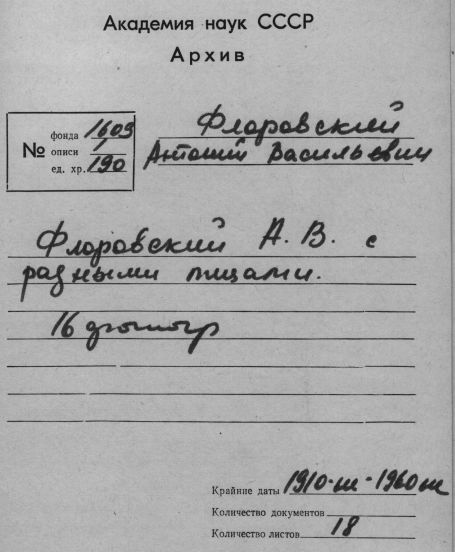 Академия наук СССР
Архив
№
фонда 1609
описи 1
ед. хр. 190
Флоровский
Антоний Васильевич
Флоровский А. В. с
разными лицами.
16 фотогр
Крайние даты 1910-ые - 1960 ые
Количество документов
Количество листов 18